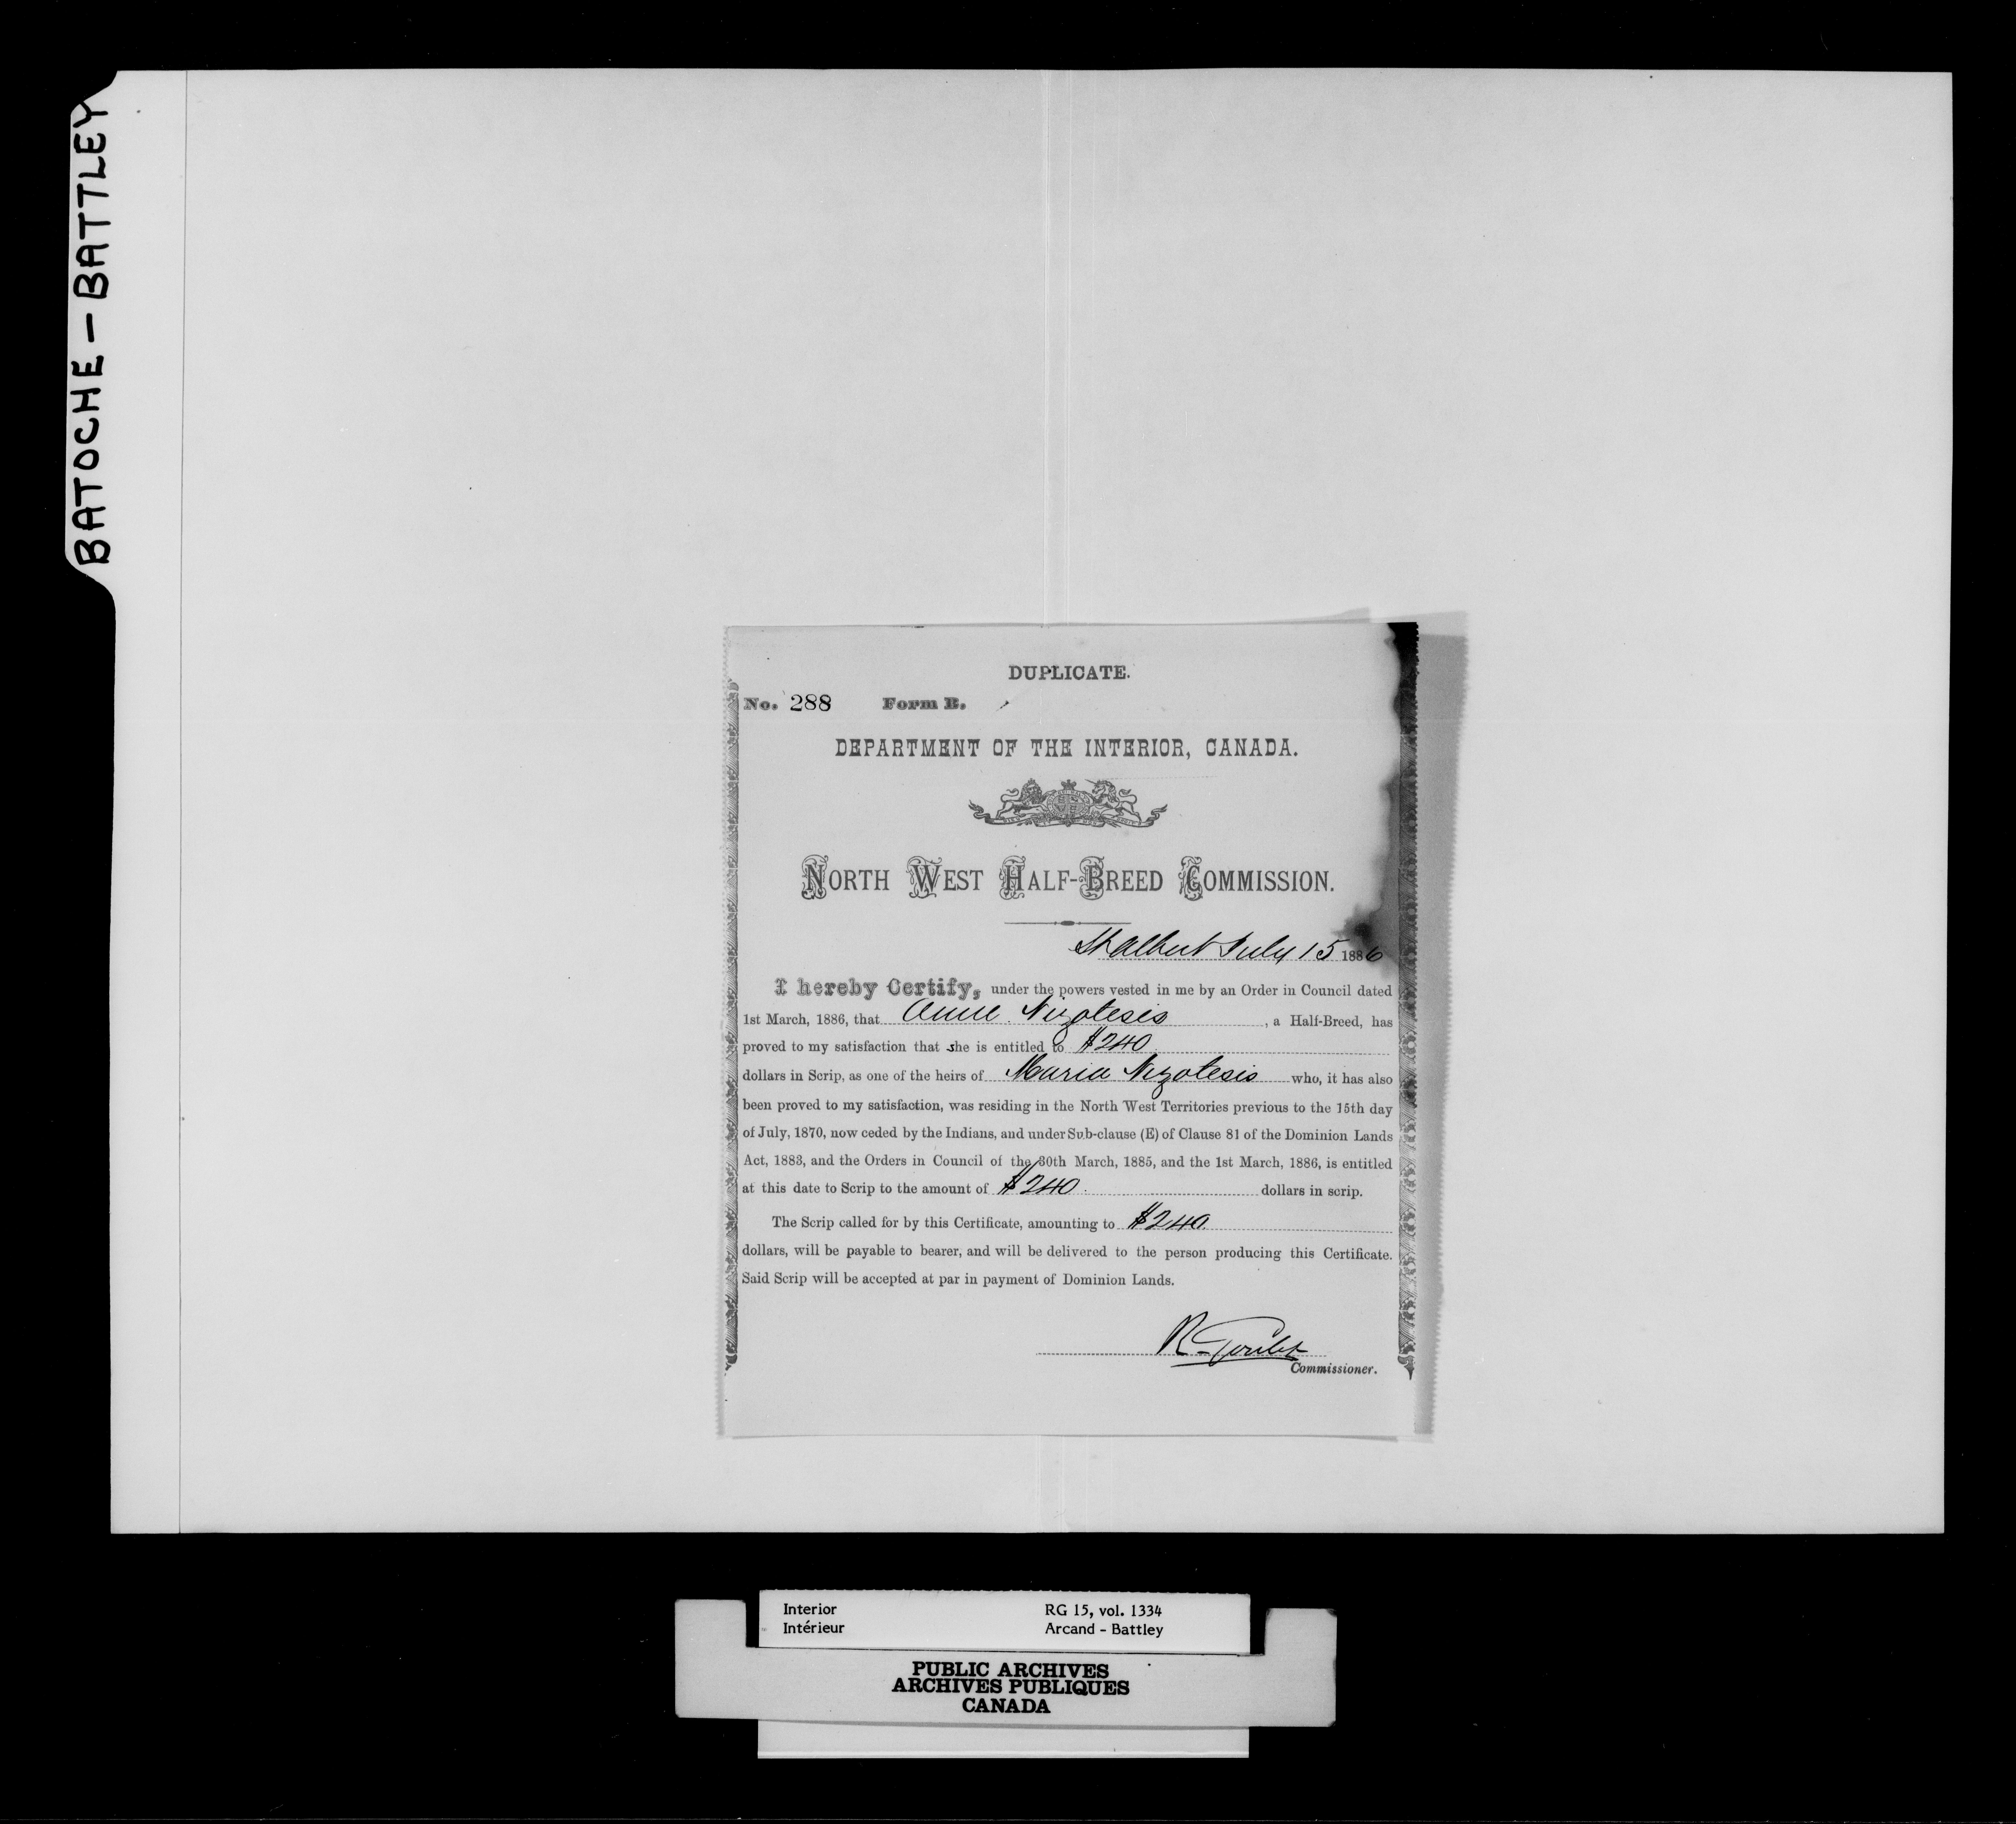 BATOCHE - BATTLEY
DUPLICATE.
No. 288 Form B.
DEPARTMENT OF THE INTERIOR, CANADA.
NORTH WEST HALF-BREED COMMISSION.
St Albert July 15 1886
I hereby Certify, under the powers vested in me by an Order in Council dated
1st March, 1886, that Anne Nizotesis, a Half-Breed, has
proved to my satisfaction that she is entitled to $240
dollars in Scrip, as one of the heirs of Maria Nizotesis who, it has also
been proved to my satisfaction, was residing in the North West Territories previous to the 15th day
of July, 1870, now ceded by the Indians, and under Sub-clause (E) of Clause 81 of the Dominion Lands
Act, 1883, and the Orders in Council of the 30th March, 1885, and the 1st March, 1886, is entitled
at this date to Scrip to the amount of $240 dollars in scrip.
The Scrip called for by this Certificate, amounting to $240
dollars, will be payable to bearer, and will be delivered to the person producing this Certificate.
Said Scrip will be accepted at par in payment of Dominion Lands.
R. Goulet
Commissioner.
Interior RG 15, vol. 1334
Intérieur Arcand - Battley
PUBLIC ARCHIVES
ARCHIVES PUBLIQUES
CANADA